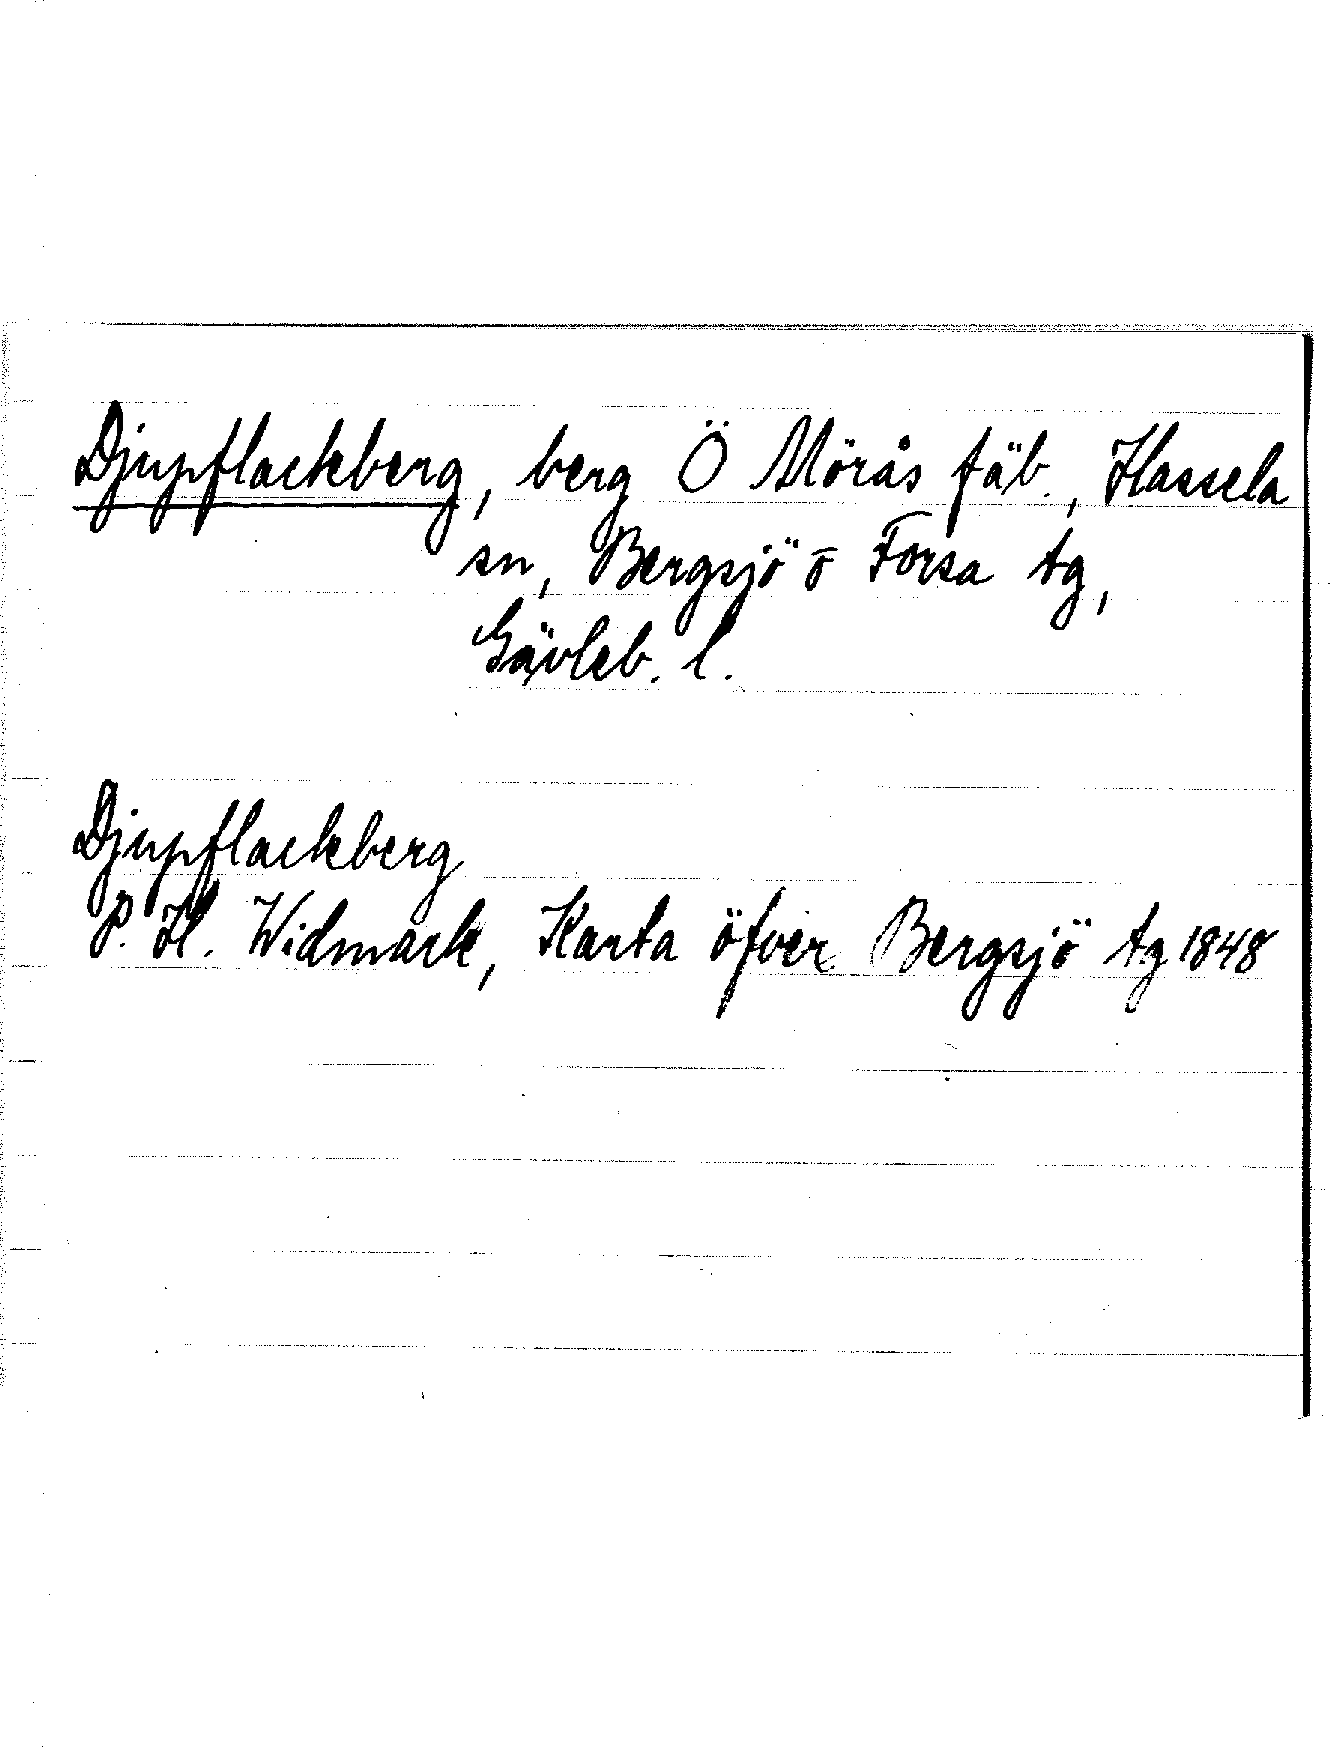 Djupflackberg, berg Ö Mörås fäb., Hassela
sn, Bergsjö o Forsa tg,
Gävleb. l.
Djupflackberg
P. H. Widmark, Karta öfver Bergsjö tg 1848